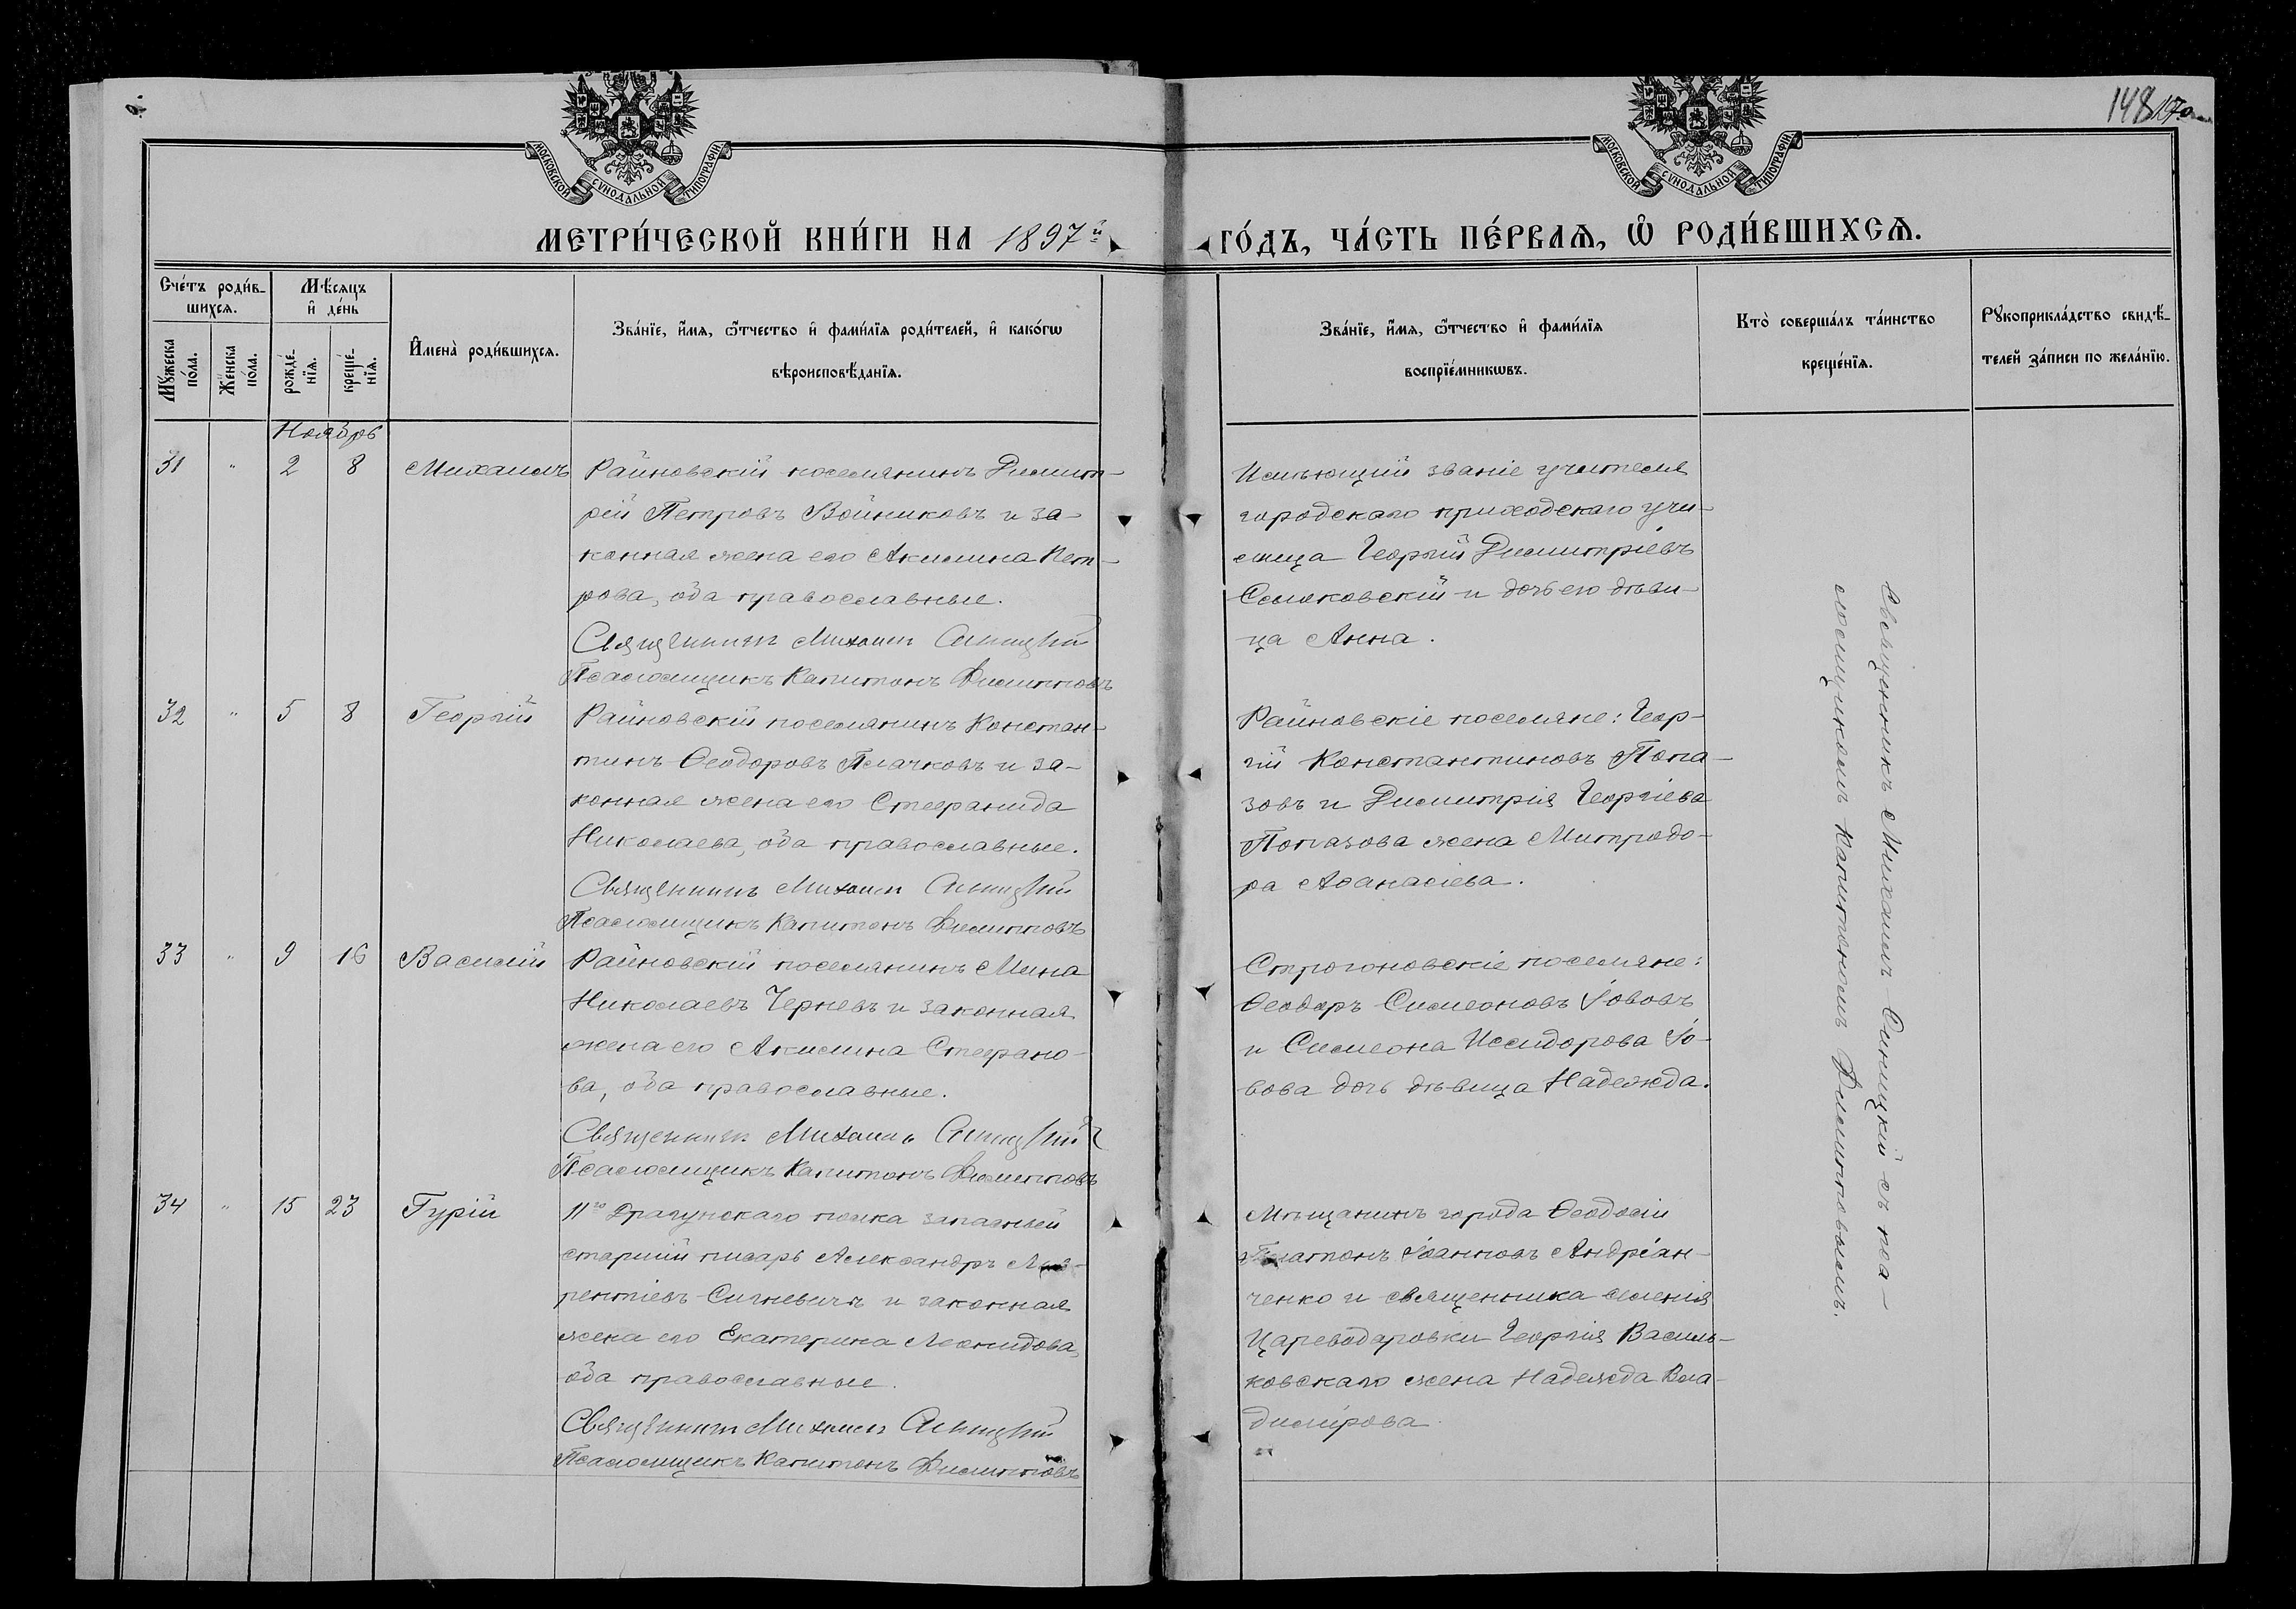 148
МОСКОВСКОЙ СУНОДАЛЬНОЙ ТИПОГРАФІИ
МОСКОВСКОЙ СУНОДАЛЬНОЙ ТИПОГРАФІИ
МЕТРИ́ЧЕСКОЙ КНИ́ГИ НА 1897й
ГО́ДЪ, ЧА́СТЬ ПЕ́РВАѦ, Ѡ҆ РОДИ́ВШИХСѦ.
Сче́тъ роди́в-
шихсѧ.
Мꙋ́жеска по́ла.
Же́нска по́ла.
Мѣ́сяцъ
и҆ де́нь
рожде́-
нїѧ.
креще́-
нїѧ.
И҆мена̀ роди́вшихсѧ.
Зва́нїе, и҆́мѧ, ѻ҆́тчество и҆ фами́лїѧ роди́телей, и҆ како́гѡ
вѣроисповѣ́данїѧ.
Зва́нїе, и҆́мѧ, ѻ҆́тчество и҆ фами́лїѧ
воспрїе́мникѡвъ.
Кто̀ соверша́лъ та́инство
креще́нїѧ.
Рꙋкоприкла́дство свидѣ́-
телей за́писи по жела́нїю.
Ноябрь
31 " 2 8 Михаилъ
Райновскій поселянинъ Димит-
рій Петровъ Войниковъ и за-
конная жена его Акилина Пет-
рова, оба православные.
Священникъ Михаилъ Синицкій
Псаломщикъ Капитонъ Филипповъ
Имѣющій званіе учителя
городскаго приходскаго учи-
лища Георгій Димитріевъ
Селяковскій и дочь его дѣви-
ца Анна.
32 " 5 8 Георгій
Райновскій поселянинъ Констан-
тинъ Ѳеодоровъ Плачковъ и за-
конная жена его Стефанида
Николаева, оба православные.
Священникъ Михаилъ Синицкій
Псаломщикъ Капитонъ Филипповъ
Райновскіе поселяне: Геор-
гій Константиновъ Попа-
зовъ и Димитрія Георгіева
Попазова жена Митродо-
ра Аѳанасіева.
33 " 9 16 Василій
Райновскій поселянинъ Мина
Николаевъ Черневъ и законная
жена его Акилина Стефано-
ва, оба православные.
Священникъ Михаилъ Синицкій
Псаломщикъ Капитонъ Филипповъ
Строгоновскіе поселяне:
Ѳеодоръ Симеоновъ Іововъ
и Симеона Исидорова Іо-
вова дочь дѣвица Надежда.
34 " 15 23 Гурій
11го Драгунскаго полка запасный
старшій писарь Александръ Лав-
рентіевъ Сигневичъ и законная
жена его Екатерина Леонидова,
оба православные.
Священникъ Михаилъ Синицкій
Псаломщикъ Капитонъ Филипповъ
Мѣщанинъ города Ѳеодосіи
Платонъ Іоанновъ Андріан-
ченко и священника селенія
Цареводаровки Георгія Василь-
ковскаго жена Надежда Вла-
димірова
Священникъ Михаилъ Синицкій съ пса-
ломщикомъ Капитономъ Филипповымъ.